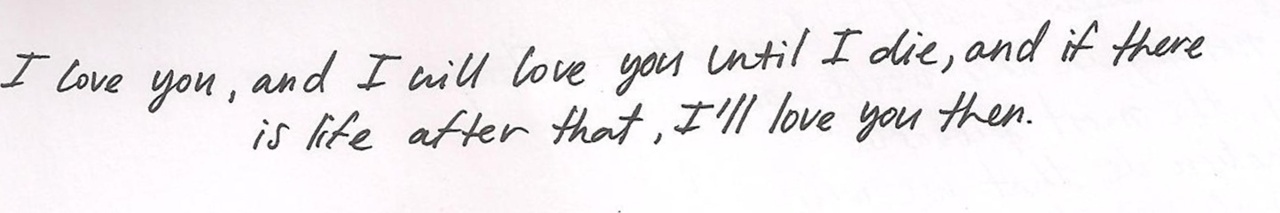 I love you, and I will love you until I die, and if there
is life after that, I'll love you then.